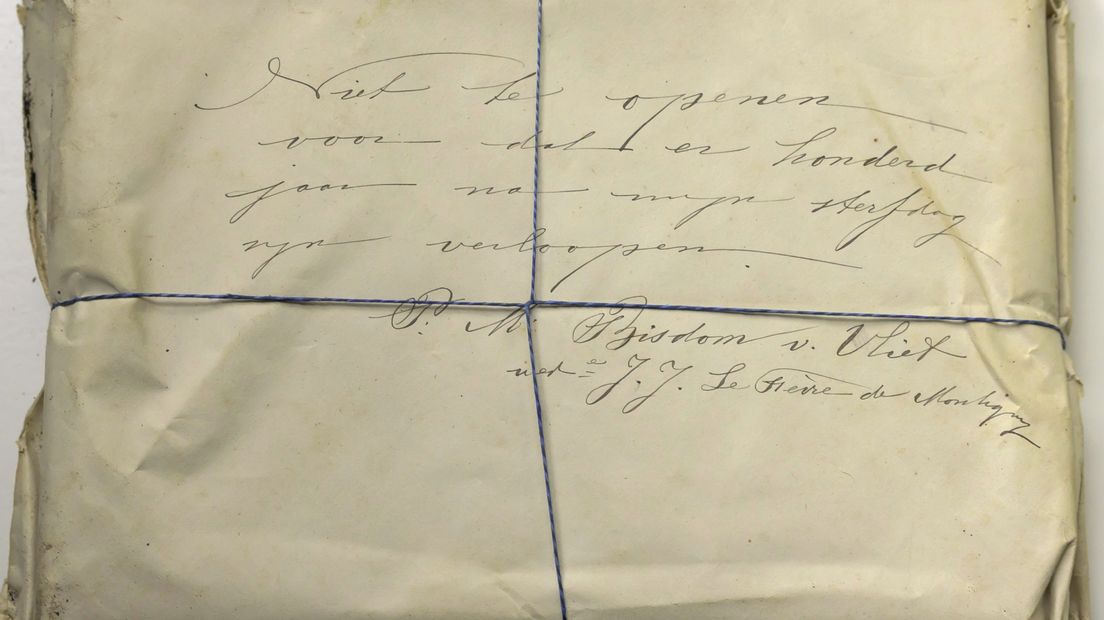 Niet te openen
voor dat er honderd
jaar na mijn sterfdag
zijn verloopen.
P. M. Bisdom v. Vliet
wed-e J. J. Le Fèvre de Montigny